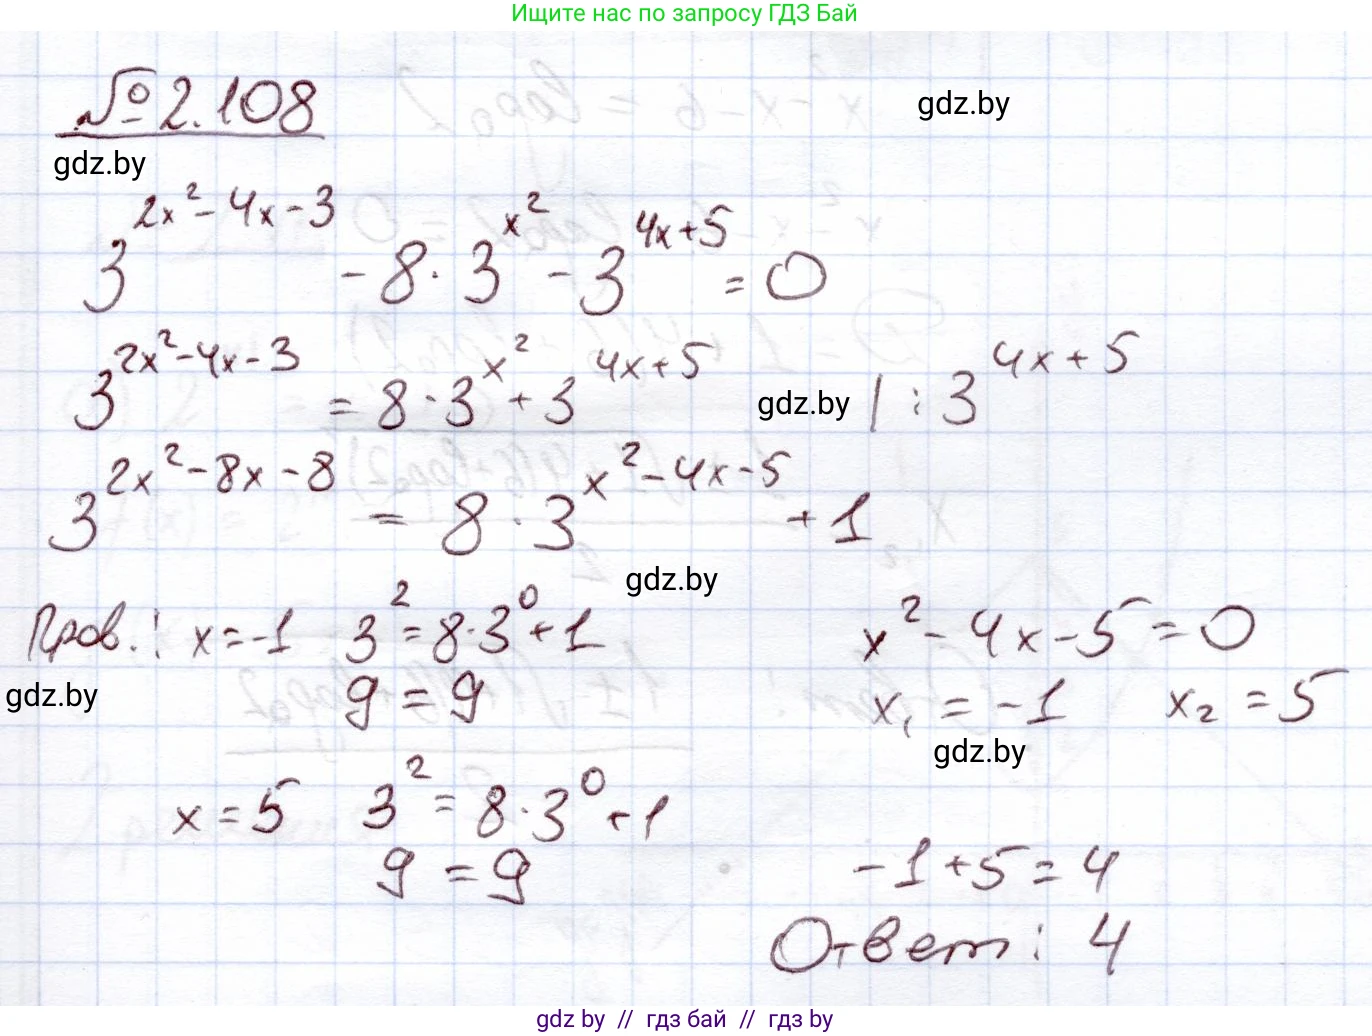 Ищите нас по запросу ГДЗ Бай
№ 2.108
gdz.by
gdz.by
3^(2x²-4x-3) - 8·3^(x²) - 3^(4x+5) = 0
3^(2x²-4x-3) = 8·3^(x²) + 3^(4x+5) | : 3^(4x+5)
gdz.by
3^(2x²-8x-8) = 8·3^(x²-4x-5) + 1
gdz.by
Пров.: x=-1 3² = 8·3⁰+1
9 = 9
gdz.by
x² - 4x - 5 = 0
x₁ = -1 x₂ = 5
gdz.by
x = 5 3² = 8·3⁰+1
9 = 9
-1+5 = 4
Ответ: 4
gdz by // гдз бай // гдз by